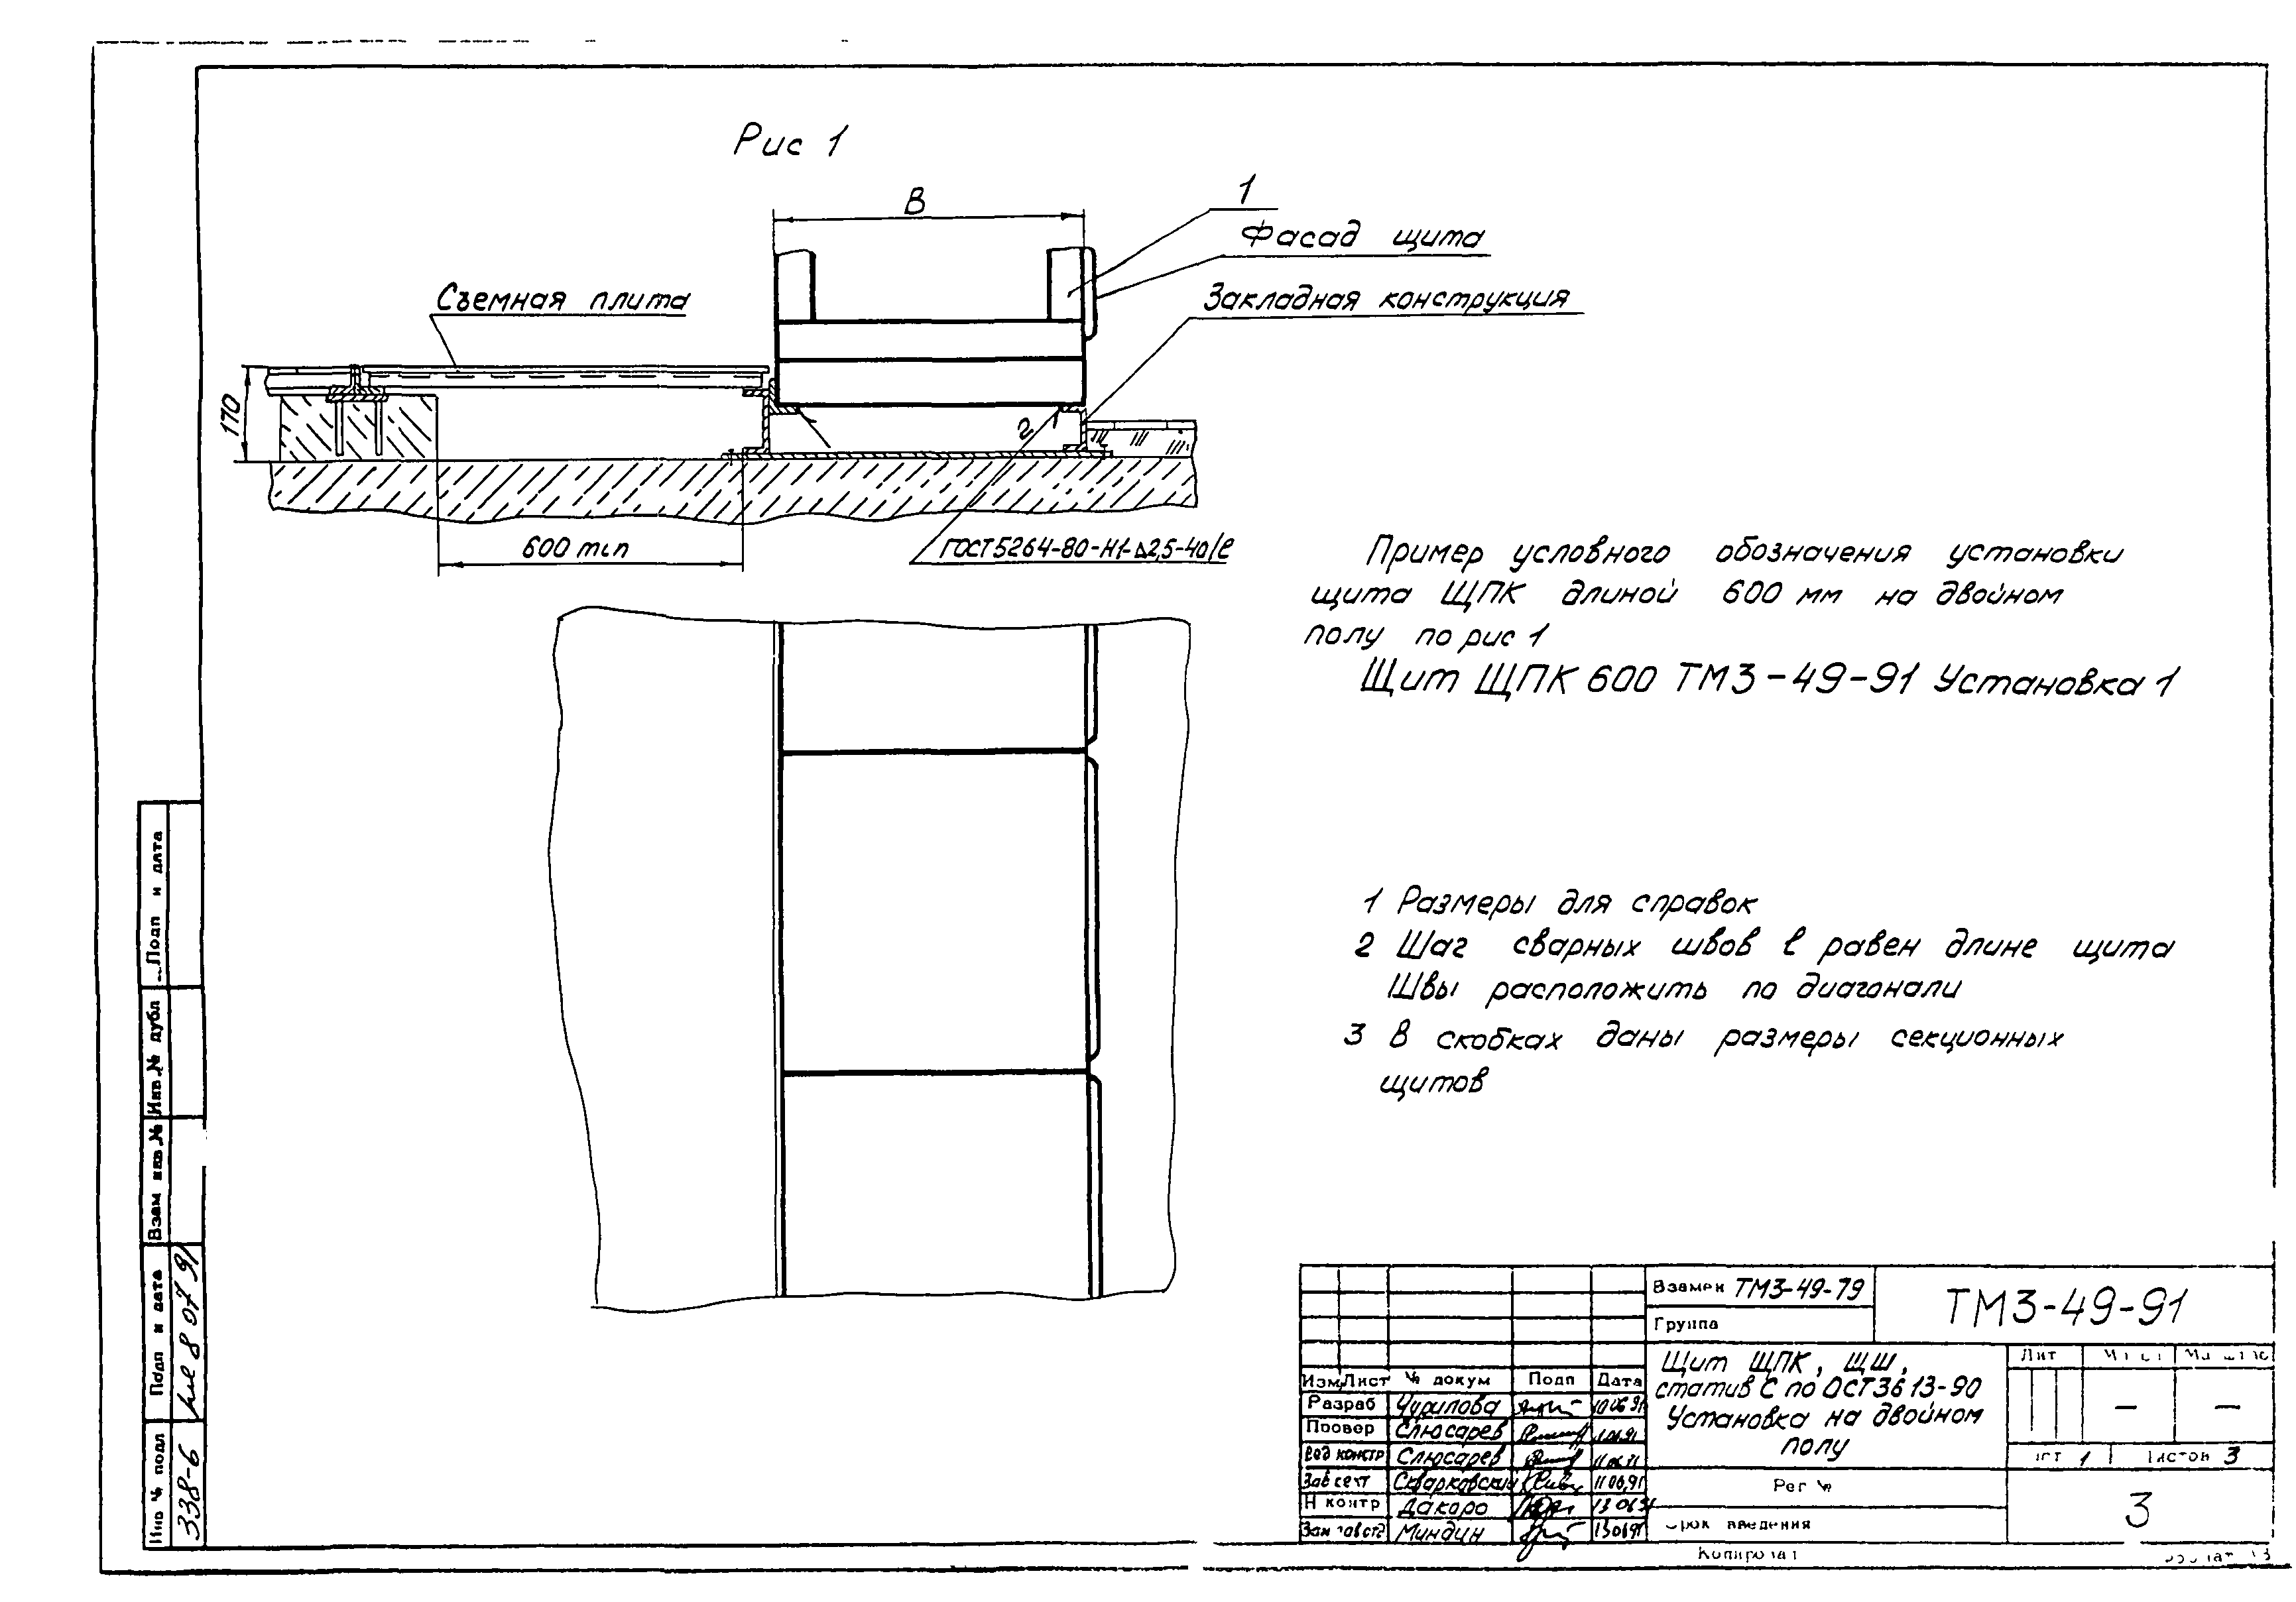 Рис 1
В
1
Фасад щита
Съемная плита
Закладная конструкция
170
2
600 min
ГОСТ 5264-80-Н1-Δ2,5-40/ℓ
Пример условного обозначения установки
щита ЩПК длиной 600 мм на двойном
полу по рис 1
Щит ЩПК 600 ТМ3-49-91 Установка 1
1 Размеры для справок
2 Шаг сварных швов ℓ равен длине щита
Швы расположить по диагонали
3 В скобках даны размеры секционных
щитов
Подп и дата
Инв № дубл
Взам инв №
Подп и дата
8 07 91
Инв № подл
338-6
Взамен ТМ3-49-79
ТМ3-49-91
Группа
Щит ЩПК, ЩШ,
статив С по ОСТ36 13-90
Установка на двойном
полу
Лит
—
—
1
Листов 3
Рег №
Срок введения
3
Изм Лист № докум Подп Дата
Разраб Чурилова 10 06 91
Провер Слюсарев
Вед констр Слюсарев
Зав сект Скварковский 11 06,91
Н контр Дакаро 13 06 91
Миндин 13 06 91
Копировал